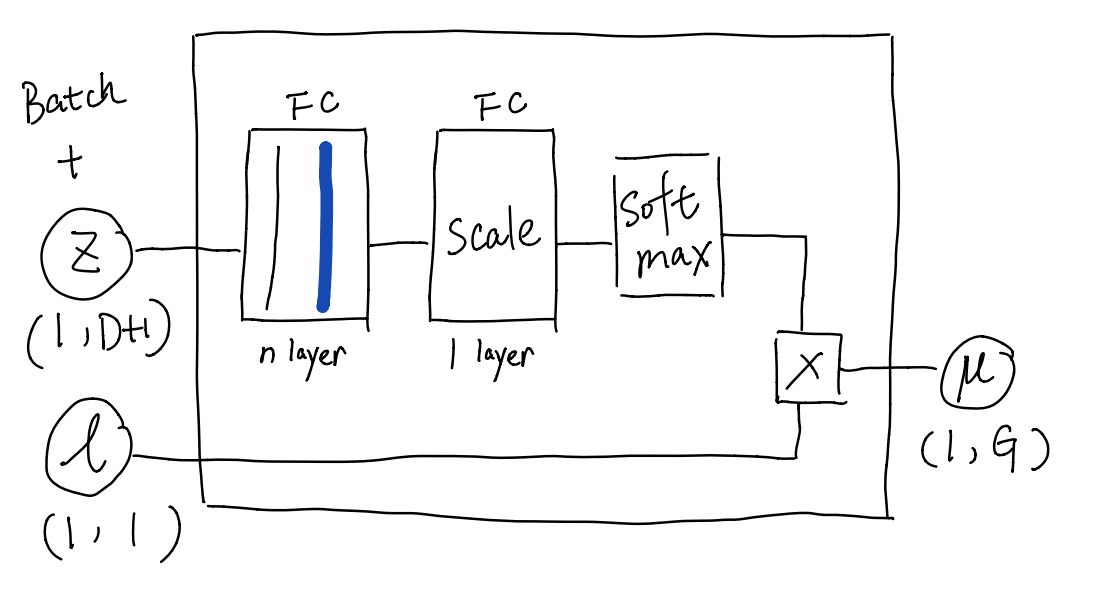 Batch
+
Z
(1, D+1)
l
(1, 1)
FC
n layer
FC
Scale
1 layer
Soft
max
X
μ
(1, G)